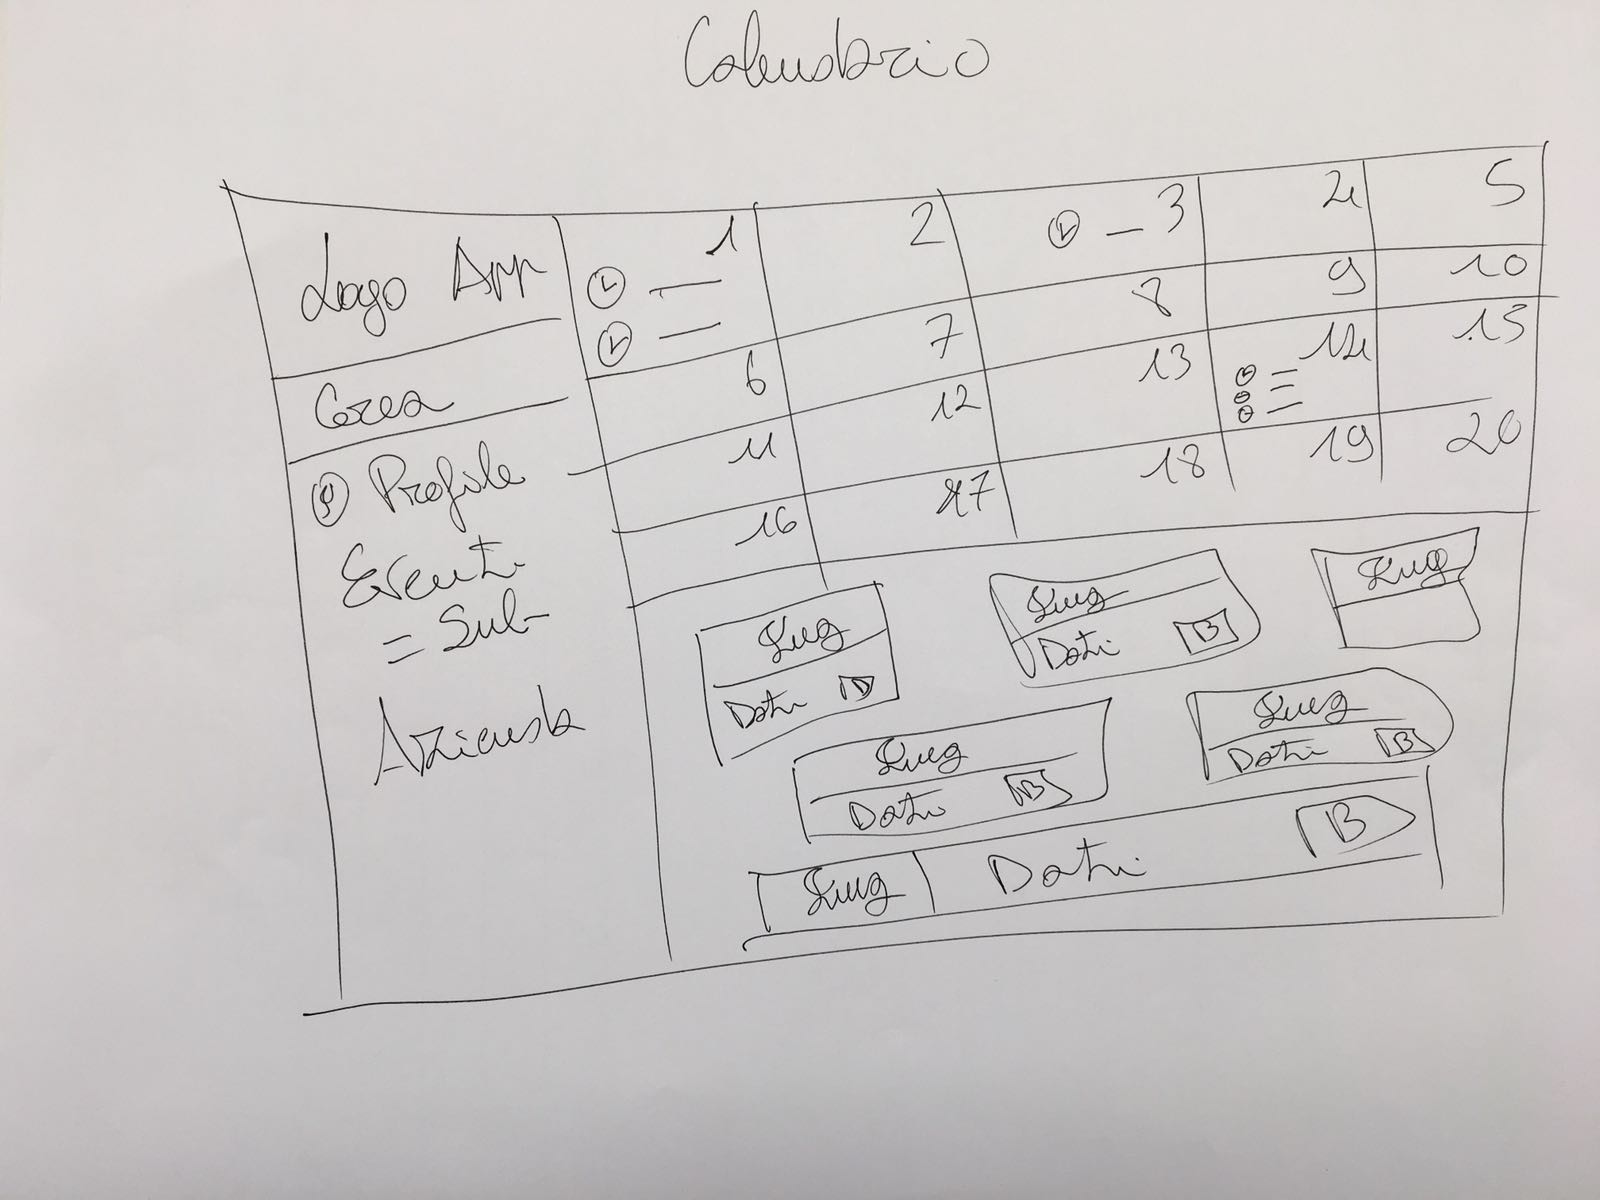 Calendario
Logo App
Crea
Profile
Eventi
= Sub-
Azienda
1 2 3 4 5
6 7 8 9 10
11 12 13 14 15
16 17 18 19 20
Img
Dati B
Img
Dati B
Img
Img
Dati B
Img
Dati B
Img Dati B